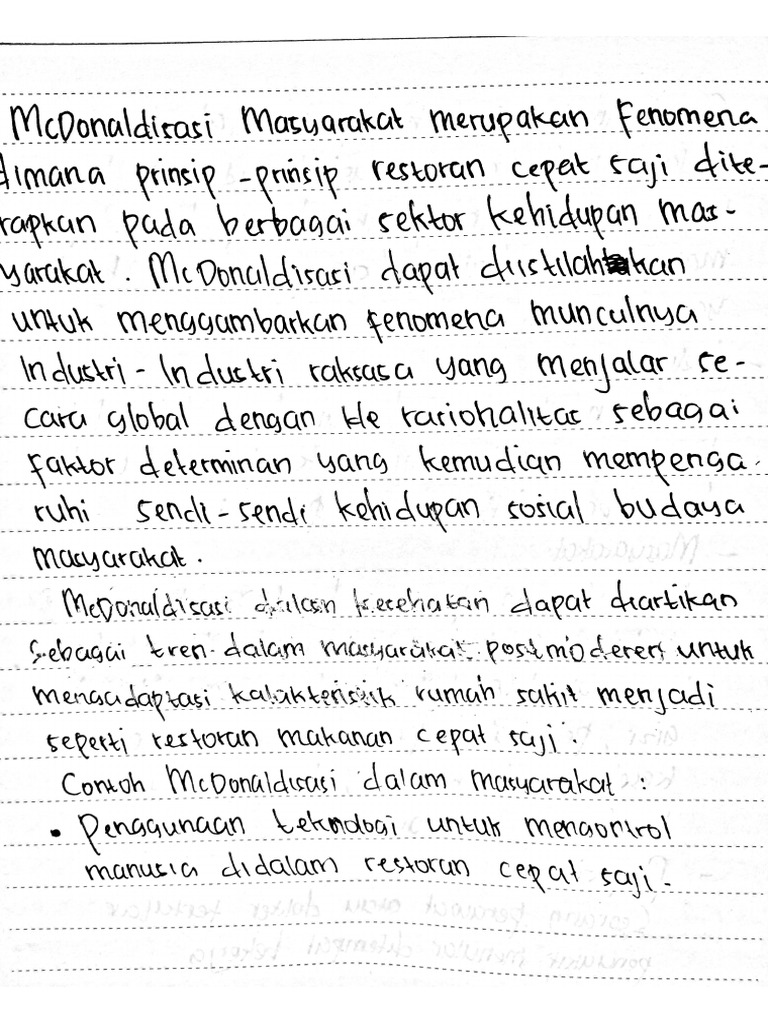 McDonaldisasi Masyarakat merupakan Fenomena
dimana prinsip-prinsip restoran cepat saji dite-
rapkan pada berbagai sektor kehidupan mas-
yarakat. McDonaldisasi dapat diistilahkan
untuk menggambarkan fenomena munculnya
Industri-Industri raksasa yang menjalar se-
cara global dengan Ide rasionalitas sebagai
faktor determinan yang kemudian mempenga-
ruhi sendi-sendi kehidupan sosial budaya
masyarakat.
McDonaldisasi kesehatan dapat diartikan
sebagai tren dalam masyarakat postmoderen untuk
mengadaptasi kalakteristik rumah sakit menjadi
seperti restoran makanan cepat saji.
Contoh McDonaldisasi dalam masyarakat :
• Penggunaan teknologi untuk mengontrol
manusia didalam restoran cepat saji.